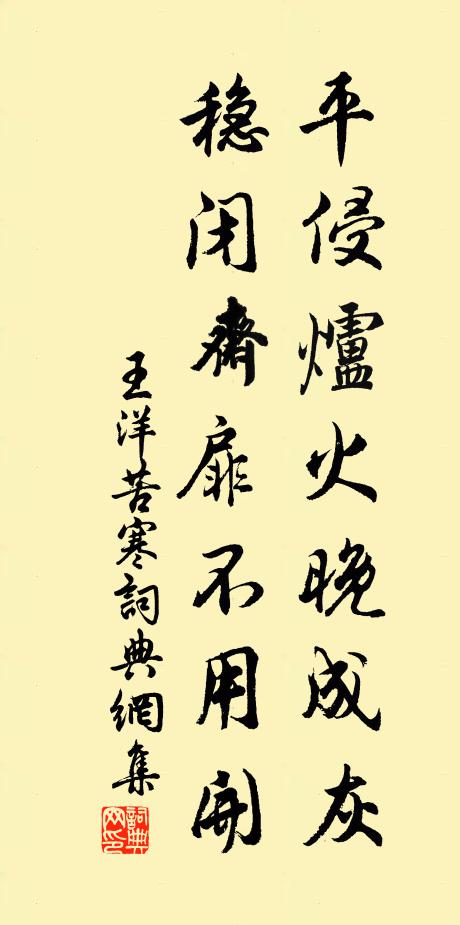 平侵爐火晚成灰
稳闭齋扉不用開
王洋苦寒詞典網集
詞典網印